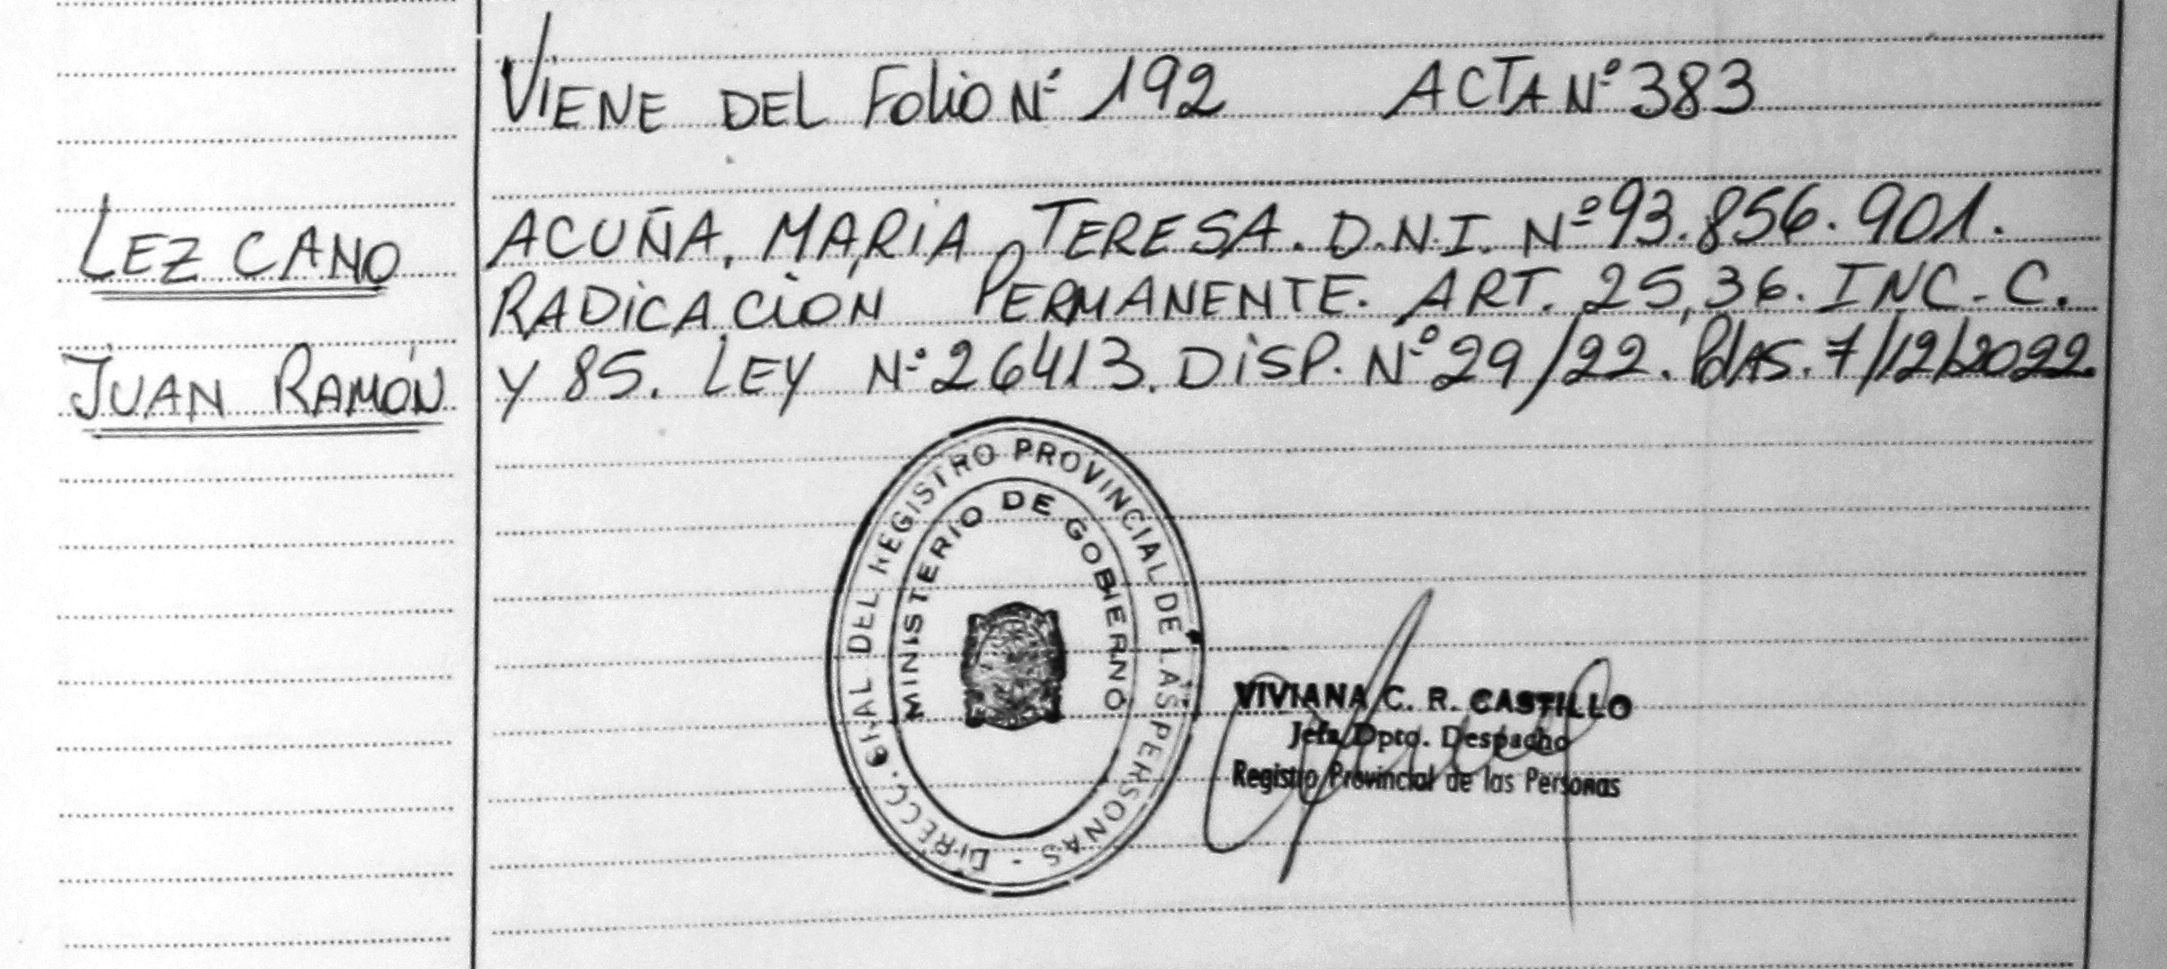 VIENE DEL FOLIO Nº 192 ACTA Nº 383
LEZCANO
JUAN RAMÓN
ACUÑA, MARIA TERESA. D.N.I. Nº 93.856.901.
RADICACIÓN PERMANENTE. ART. 25, 36. INC. C.
Y 85. LEY Nº 26413. DISP. Nº 29/22. Pdas. 7/12/2022.
DIRECC. GRAL DEL REGISTRO PROVINCIAL DE LAS PERSONAS -
MINISTERIO DE GOBIERNO
VIVIANA C. R. CASTILLO
Jefa Dpto. Despacho
Registro Provincial de las Personas